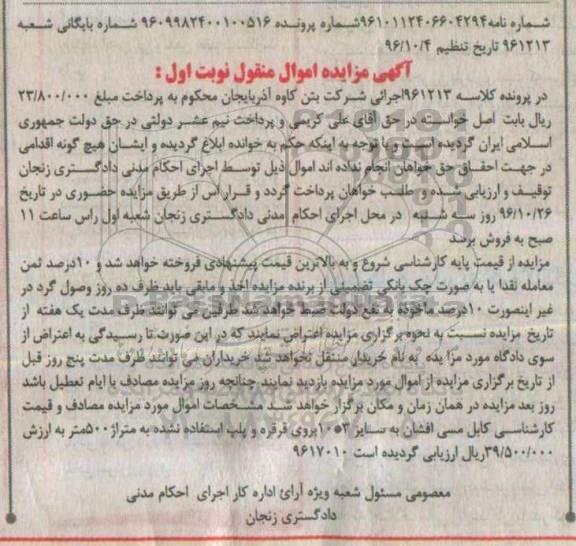 شماره نامه۹۶۱۰۱۱۲۴۰۶۶۰۴۲۹۴شماره پرونده ۹۶۰۹۹۸۲۴۰۰۱۰۰۵۱۶ شماره بایگانی شعبه
۹۶۱۲۱۳ تاریخ تنظیم ۹۶/۱۰/۴
آگهی مزایده اموال منقول نوبت اول :
در پرونده کلاسه ۹۶۱۲۱۳اجرائی شرکت بتن کاوه آذربایجان محکوم به پرداخت مبلغ ۲۳/۸۰۰/۰۰۰
ریال بابت اصل خواسته در حق آقای علی کریمی و پرداخت نیم عشر دولتی در حق دولت جمهوری
اسلامی ایران گردیده است و با توجه به اینکه حکم به خوانده ابلاغ گردیده و ایشان هیچ گونه اقدامی
در جهت احقاق حق خواهان انجام نداده اند اموال ذیل توسط اجرای احکام مدنی دادگستری زنجان
توقیف و ارزیابی شده و طلب خواهان پرداخت گردد و قرار اس از طریق مزایده حضوری در تاریخ
۹۶/۱۰/۲۶ روز سه شنبه در محل اجرای احکام مدنی دادگستری زنجان شعبه اول راس ساعت ۱۱
صبح به فروش برسد
مزایده از قیمت پایه کارشناسی شروع و به بالاترین قیمت پیشنهادی فروخته خواهد شد و ۱۰درصد ثمن
معامله نقدا یا به صورت چک بانکی تضمینی از برنده مزایده اخذ و مابقی باید ظرف ده روز وصول گردد در
غیر اینصورت ۱۰درصد ماخوذه به نفع دولت ضبط خواهد شد طرفین می توانند ظرف مدت یک هفته از
تاریخ مزایده نسبت به نحوه برگزاری مزایده اعتراض نمایند که در این صورت تا رسیدگی به اعتراض از
سوی دادگاه مورد مزا یده به نام خریدار منتقل نخواهد شد خریداران می توانند ظرف مدت پنج روز قبل
از تاریخ برگزاری مزایده از اموال مورد مزایده بازدید نمایند چنانچه روز مزایده مصادف با ایام تعطیل باشد
روز بعد مزایده در همان زمان و مکان برگزار خواهد شد مشخصات اموال مورد مزایده مصادف و قیمت
کارشناسی کابل مسی افشان به سایز ۳*۱۰بروی قرقره و پلپ استفاده نشده به متراژ۵۰۰متر به ارزش
۳۹/۵۰۰/۰۰۰ریال ارزیابی گردیده است ۹۶۱۷۰۱۰
معصومی مسئول شعبه ویژه آرائ اداره کار اجرای احکام مدنی
دادگستری زنجان